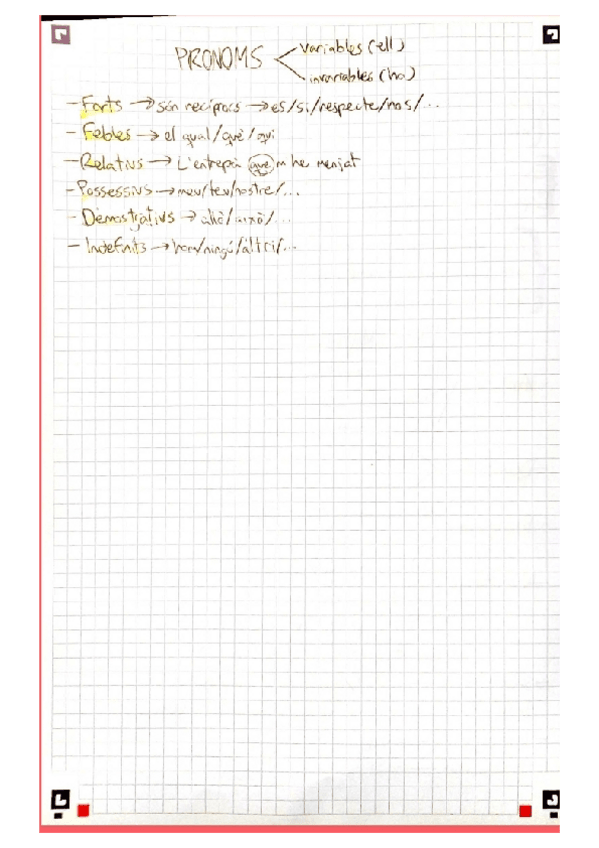 PRONOMS
variables (ell)
invariables (ho)
- Forts → són recíprocs → es/si/respecte/nos/...
- Febles → el qual/què/qui
- Relatius → L'entrepà que m'he menjat
- Possessius → meu/teu/nostre/...
- Demostratius → allò/això/...
- Indefinits → hom/ningú/altri/...